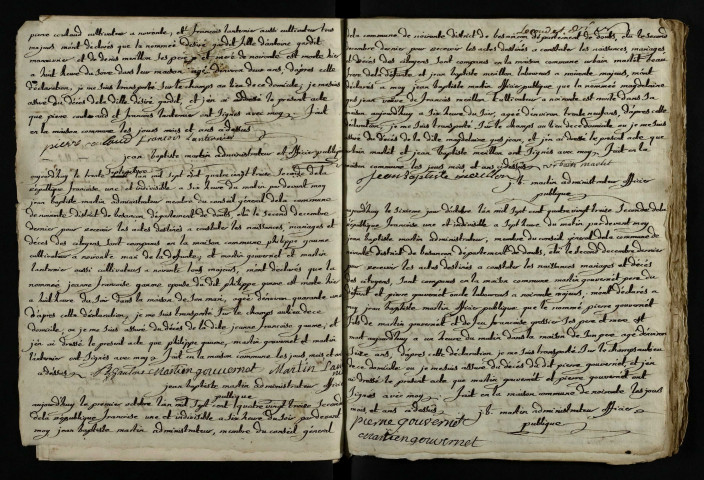 pierre coulaud cultivateur a noironte, et françois lanternier aussi cultivateur tous
majurs mont déclarés que la nommée désiré gadit fille d'antoine gadit
manouvrier et de denise meuillon ses pere et mere de noironte est morte hier
a huit heure du soir dans leur maison agée d'environ deux ans, d'après cette
déclaration, je me suis transporté sur le champs au lieu de ce domicile; je me suis
assuré du décés de la dite désiré gadit, et j'en ai dressé le présent acte
que pierre coulaud et françois lanternier ont signés avec moy. fait
en la maison commune les jours mois et ans adessus
pierre coulaud françois lanternier
jean baptiste martin administrateur et officier publique
aujourdhuy le trente septembre l'an mil sept cent quatre vingt treize seconde de la
république françoise une et indivisible a six heure du matin par devant moy
jean baptiste martin administrateur membre du conseil général de la commune
de noironte district de besancon département du doubs, élu le second decembre
dernier pour recevoir les actes destinés a constater les naissances, mariages et
décés des citoyens sont comparus en la maison commune philippe ganme
cultivateur a noironte mari de la défunte; et martin gouvernet et martin
lanternier aussi cultivateurs a noironte tous majeurs, mont déclarés que la
nommée jeanne françoise ganme épouse du dit philippe ganme est morte hier
a huit heure du soir dans la maison de son mari, agée d'environ quarante ans
d'après cette déclaration, je me suis transporté sur le champs au lieu de ce
domicile, je me suis assuré du décés de la dite jeanne françoise ganme, et
j'en ai dressé le présent acte que philippe ganme, martin gouvernet et martin
lanternier ont signés avec moy. fait en la maison commune les jours mois et ans
adessus martien gouvernet Martin
jean baptiste martin administrateur officier
publique
aujourdhuy le premier octobre l'an mil sept cent quatre vingt treize seconde
de la république françoise une et indivisible, a six heure du soir par devant
moy jean baptiste martin administrateur, membre du conseil général
de la commune de noironte district de besancon département du doubs, élu le second
decembre dernier pour recevoir les actes destinés a constater les naissances, mariages
et décés des citoyens sont comparus en la maison commune urbain maclet beau
frere de la défunte, et jean baptiste meuillon laboureurs a noironte majeurs, mont
déclarés a moy jean baptiste martin officier publique que la nommée magdelaine
gueg veuve de françois meuillon cultivateur a noironte est morte dans sa
maison aujourdhuy a six heure du soir, agée d'environ trente ans, d'après cette
déclaration, je me suis transporté sur le champs au lieu de ce domicile, je me suis
assuré du décés de la dite magdelaine gueg, et j'en ai dressé le présent acte que
urbain maclet et jean baptiste meuillon ont signés avec moy. fait en la
maison commune les jours mois et ans adessus urbain maclet
jean baptiste meuillon
j.b. martin administrateur officier
publique
aujourdhuy le sixieme jour d'octobre l'an mil sept cent quatre vingt treize seconde de la
république françoise une et indivisible a sept heure du matin par devant moy
jean baptiste martin administrateur, membre du conseil général de la commune de
noironte district de besancon département du doubs, élu le second decembre dernier
pour recevoir les actes destinés a constater les naissances mariages et décés
des citoyens, sont comparus en la maison commune martin gouvernet pere du
défunt et pierre gouvernet oncle laboureurs a noironte majeurs, mont déclarés a
moy jean baptiste martin officier publique que le nommé pierre gouvernet
fils de martin gouvernet et de
mort aujourdhuy a une heure du matin dans la maison de son pere agé d'environ
ans, d'après cette déclaration je me suis transporté sur le champs au lieu
de ce domicile je me suis assuré du décés du dit pierre gouvernet, et j'en
ai dressé le présent acte que martin gouvernet et pierre gouvernet ont
signés avec moy. fait en la maison commune de noironte les jours
mois et ans adessus j.b. martin administrateur officier
publique
pierre gouvernet
martien gouvernet